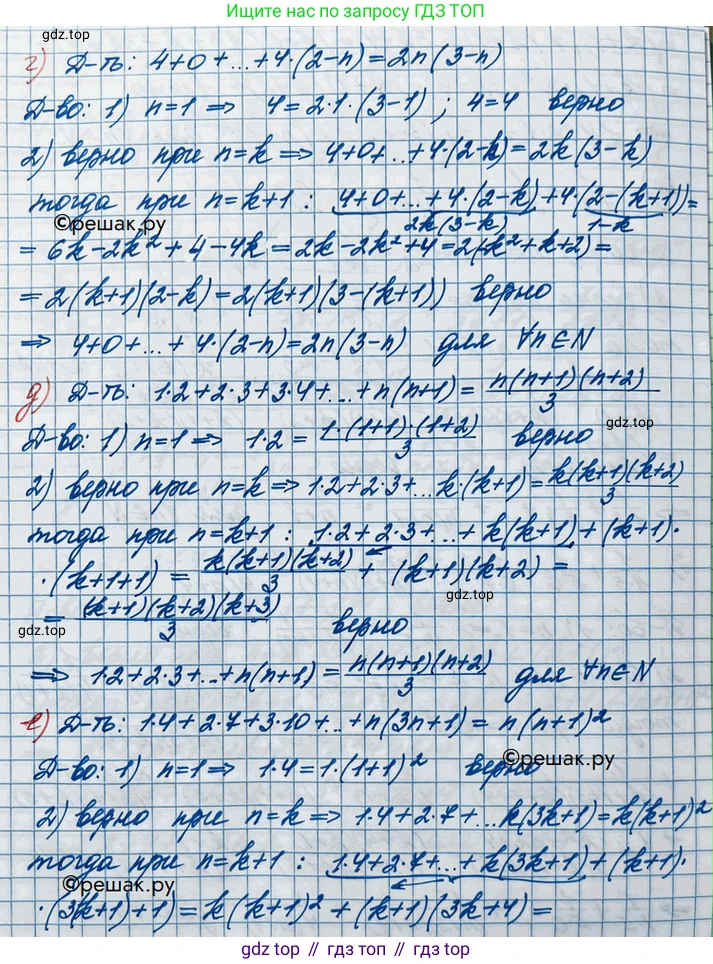 Ищите нас по запросу ГДЗ ТОП
gdz.top
г) Д-ть: 4+0+...+4·(2-n)=2n(3-n)
Д-во: 1) n=1 ⇒ 4=2·1·(3-1) ; 4=4 верно
2) верно при n=k ⇒ 4+0+...+4·(2-k)=2k(3-k)
тогда при n=k+1 : 4+0+...+4·(2-k)+4·(2-(k+1))=
2k(3-k) 1-k
©решак.ру
= 6k-2k²+4-4k=2k-2k²+4=2(-k²+k+2)=
=2(k+1)(2-k)=2(k+1)(3-(k+1)) верно
⇒ 4+0+...+4·(2-n)=2n(3-n) для ∀n∈N
д) Д-ть: 1·2+2·3+3·4+...+n(n+1)= n(n+1)(n+2)/3
gdz.top
Д-во: 1) n=1 ⇒ 1·2= 1·(1+1)·(1+2)/3 верно
2) верно при n=k ⇒ 1·2+2·3+...k·(k+1)=k(k+1)(k+2)/3
тогда при n=k+1 : 1·2+2·3+...+k(k+1)+(k+1)·
·(k+1+1) = k(k+1)(k+2)/3 + (k+1)(k+2)=
gdz.top
= (k+1)(k+2)(k+3)/3 верно
gdz.top
⇒ 1·2+2·3+...+n(n+1)= n(n+1)(n+2)/3 для ∀n∈N
е) Д-ть: 1·4+2·7+3·10+...+n(3n+1)= n(n+1)²
Д-во: 1) n=1 ⇒ 1·4=1·(1+1)² верно
©решак.ру
2) верно при n=k ⇒ 1·4+2·7+...k(3k+1)=k(k+1)²
тогда при n=k+1 : 1·4+2·7+...+k(3k+1)+(k+1)·
©решак.ру
gdz.top
·(3(k+1)+1)=k(k+1)²+(k+1)(3k+4)=
gdz top // гдз топ // gdz top // гдз топ